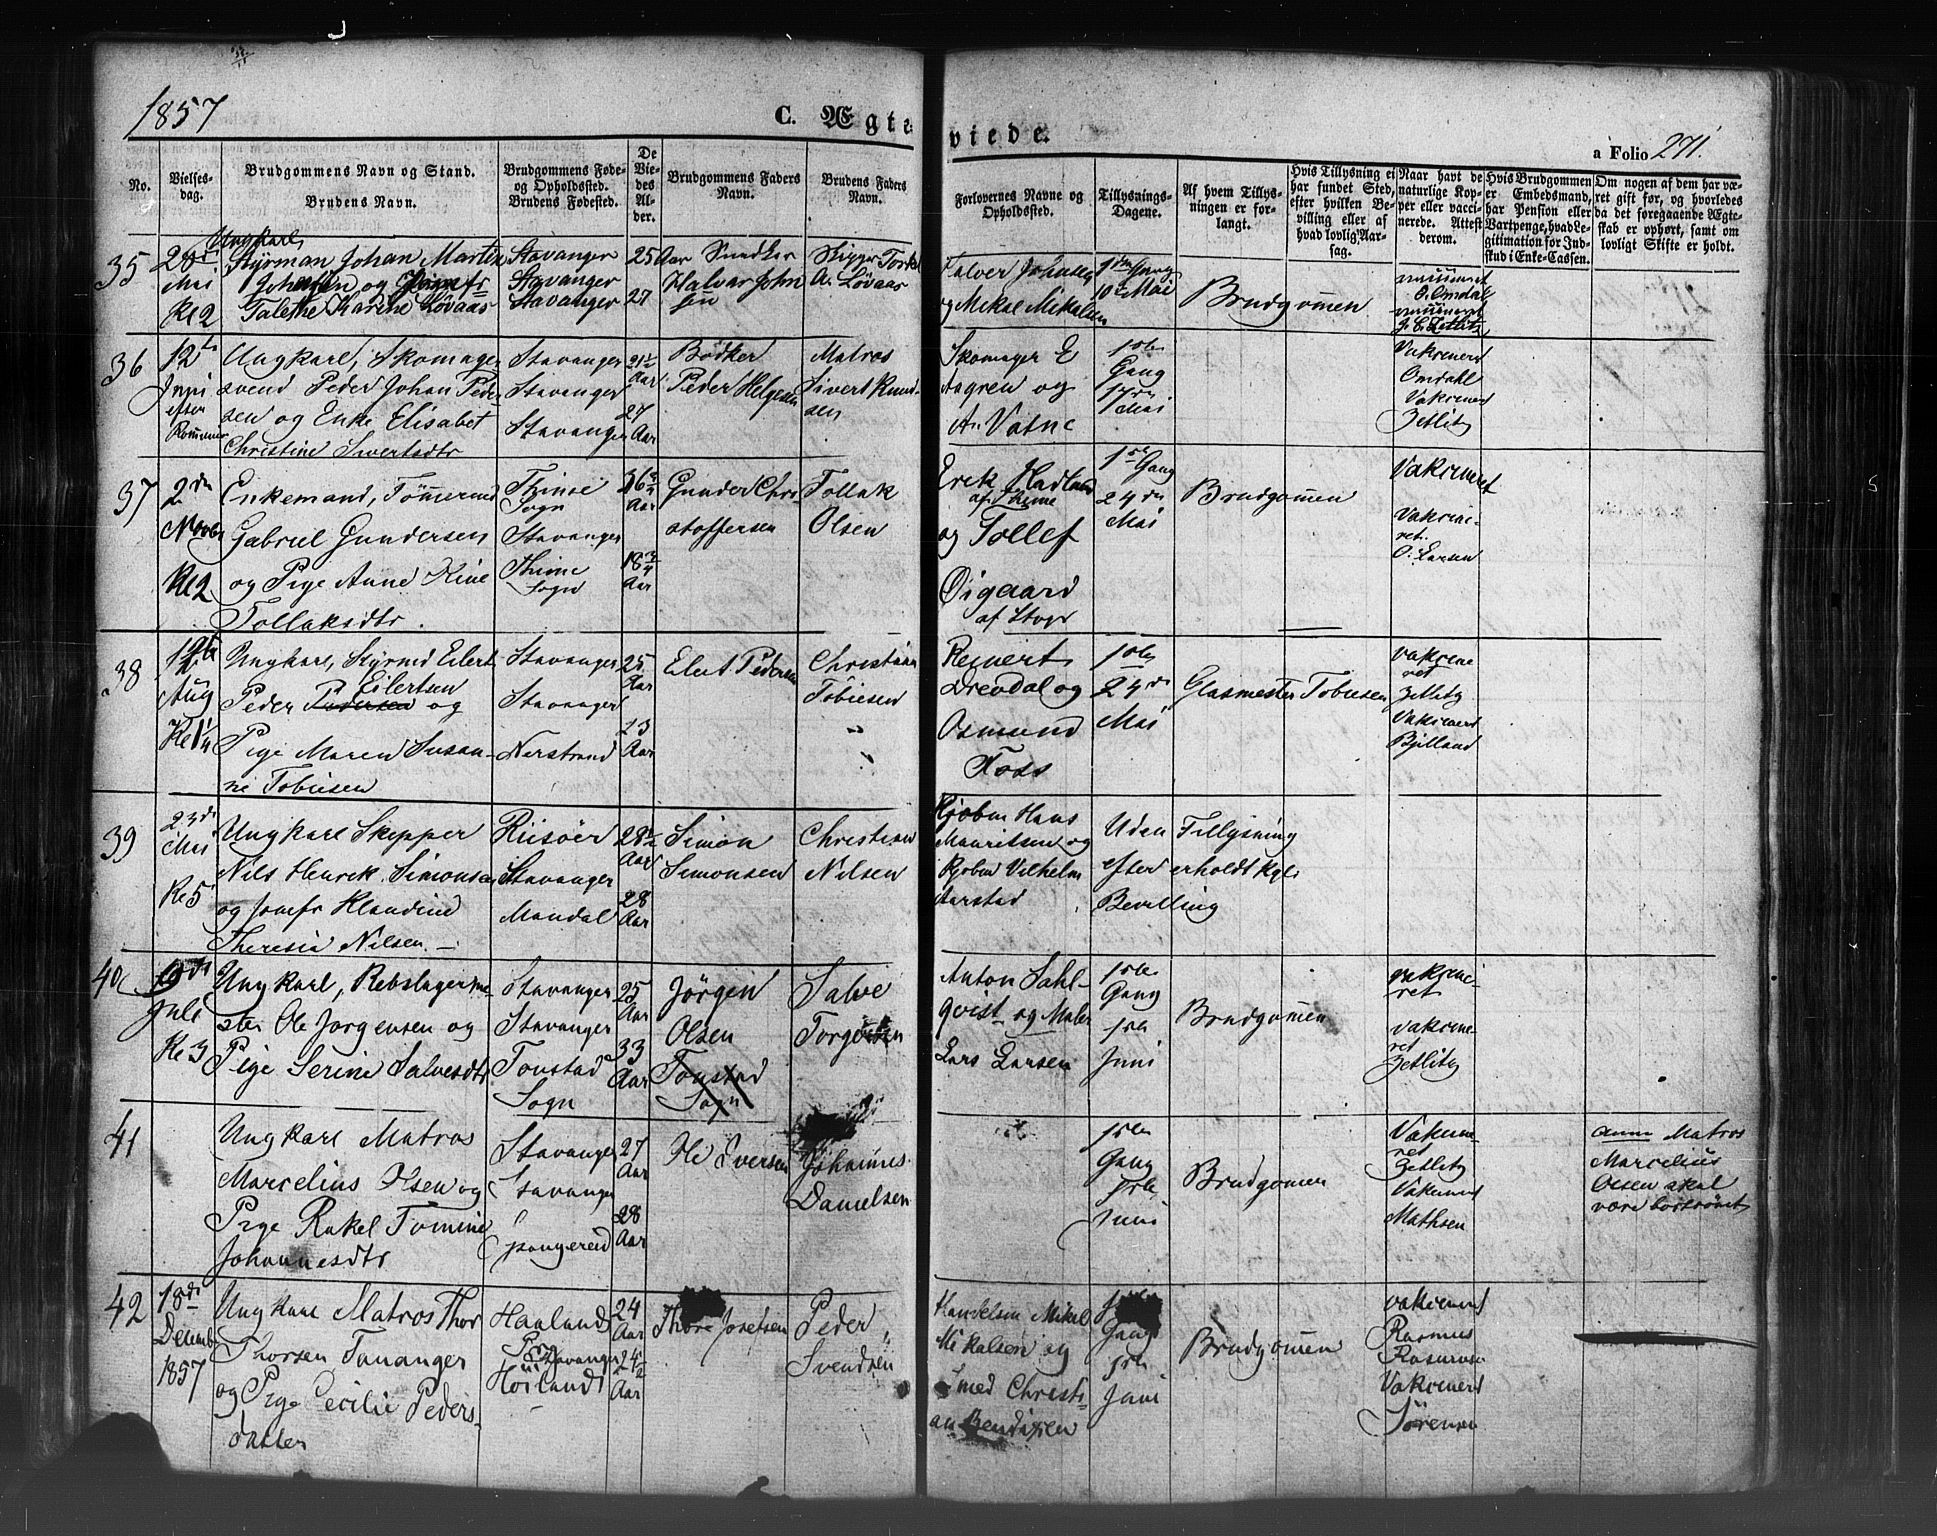 1857
C. Ægteviede.
a Folio 271.
No.
Vielses-dag.
Brudgommens Navn og Stand.
Brudens Navn.
Brudgommens Føde- og Opholdssted.
Brudens Fødested.
De Viedes Alder.
Brudgommens Faders Navn.
Brudens Faders Navn.
Forlovernes Navne og Opholdssted.
Tillysnings-Dagene.
Af hvem Tillysningen er forlangt.
Hvis Tillysning ei har fundet Sted, efter hvilken Bevilling eller af hvad lovlig Aarsag.
Naar havt de naturlige Kopper eller vaccinerede. Attest derom.
Hvis Brudgommen er Embedsmand, har Pension eller Vartpenge, hvad Legitimation for Indskud i Enke-Cassen.
Om nogen af dem har været gift før, og hvorledes da det foregaaende Ægteskab er ophørt, samt om lovligt Skifte er holdt.
35
28de
Mai
Kl 2
Ungkarl,
Styrman Johan Martin
Johnsen og Jomfr
Talette Karine Løvaas
Stavanger
Stavanger
Stavanger
25 Aar
27
Snedker
Halvar John
sen
Skipper Torkel
A. Løvaas
Talver Johnsen
og Mikal Mikalsen
1ste Gang
10de Mai
Brudgommen
O. Omdal
Zetlitz
36
12te
Juni
efter
Ungkarl, Skomager
svend Peder Johan Peder
sen og Enke Elisabet
Christine Sivertsdtr
Stavanger
Stavanger
Stavanger
21½
Aar
27
Aar
Bødker
Peder Helgesen
Matros
Sivert Knud
sen
Skomager E
Aagren og
A. Vatne
1ste
Gang
17de
Mai
Vakcinerd
Omdahl
Vakcinerd
Zetlitz
37
2den
Novbr
Kl 2
Enkemand, Tømmermd
Gabriel Gundersen
og Pige Anne Kine
Tollaksdtr.
Thime
Sogn
Stavanger
Thime
Sogn
36¾
Aar
18¾
Aar
Gunder Chri
stoffersen
Tollak
Olsen
Erik Hadland
af Thime
og Tollef
Øigaard
1ste Gang
24de
Mai
Brudgommen
Vakcineret
Vakcine-
ret.
O. Larsen
38
12te
Aug
Kl 1¼
Ungkarl, Styrmd Eilert
Eilertsen
Peder Pedersen og
Pige Maren Susan-
ne Tobiesen
Stavanger
Stavanger
Nerstrand
25
Aar
23
Aar
Elert Pedersen
Christian
Tobiesen
Reinert
Drevdal og
Osmund
Foss
1ste
24de
Mai
Glasmester Tobiesen
Vakcine
ret
Zetlitz
Vakcinerd
Bjelland
39
23de
Mai
Kl 5
Ungkarl Skepper
Nils Henrik Simonsen
og Jomfr Klaudine
Theresia Nilsen. —
Riisøer
Stavanger
Mandal
28½
Aar
28
Aar
Simon
Simonsen
Christian
Nilsen
Kjøbm Hans
Mauritsen og
Kjøbm Vilhelm
Aarstad
Uden Tillysning
efter erholdt Kgl.
Bevilling
40
9de
Juli
Kl 3
Ungkarl, Rebslagerme-
ster Ole Jørgensen og
Pige Serine Salvesdtr
Stavanger
Stavanger
Tonstad
Sogn
25
Aar
33
Aar
Jørgen
Olsen
Tonstad
Sogn
Salve
Torgersen
Anton Sahl-
qvist og Maler
Lars Larsen
1ste
Gang
1ste
Juni
Brudgommen
Vakcine-
ret
Vakcine-
ret
Zetlitz
41
Ungkarl Matros
Marcelius Olsen og
Pige Rakel Tomine
Johannesdtr
Stavanger
Stavanger
Spangereid
27
Aar
28
Aar
Ole Iversen
Johannes
Danielsen
1ste
Gang
1ste
Juni
Brudgommen
Vakcine-
ret
Zetlitz
Vakcinerd
Mathsen
Anm Matros
Marcelius
Olsen skal
være bortrømt
42
18de
Decemb
1857
Ungkarl Matros Thor
Thorsen Tananger
og Pige Cecilie Peders-
datter
Haalands
Stavanger
Høilands
24
Aar
24½
Aar
Thore Josefsen
Peder
Svendsen
Handelsm Mikal
Mikalsen og
Smed Christi-
an Bendixen
Gang
1ste
Juni
Brudgommen
Vakcinerd
Rasmus
Vakcinerd
Sørensen